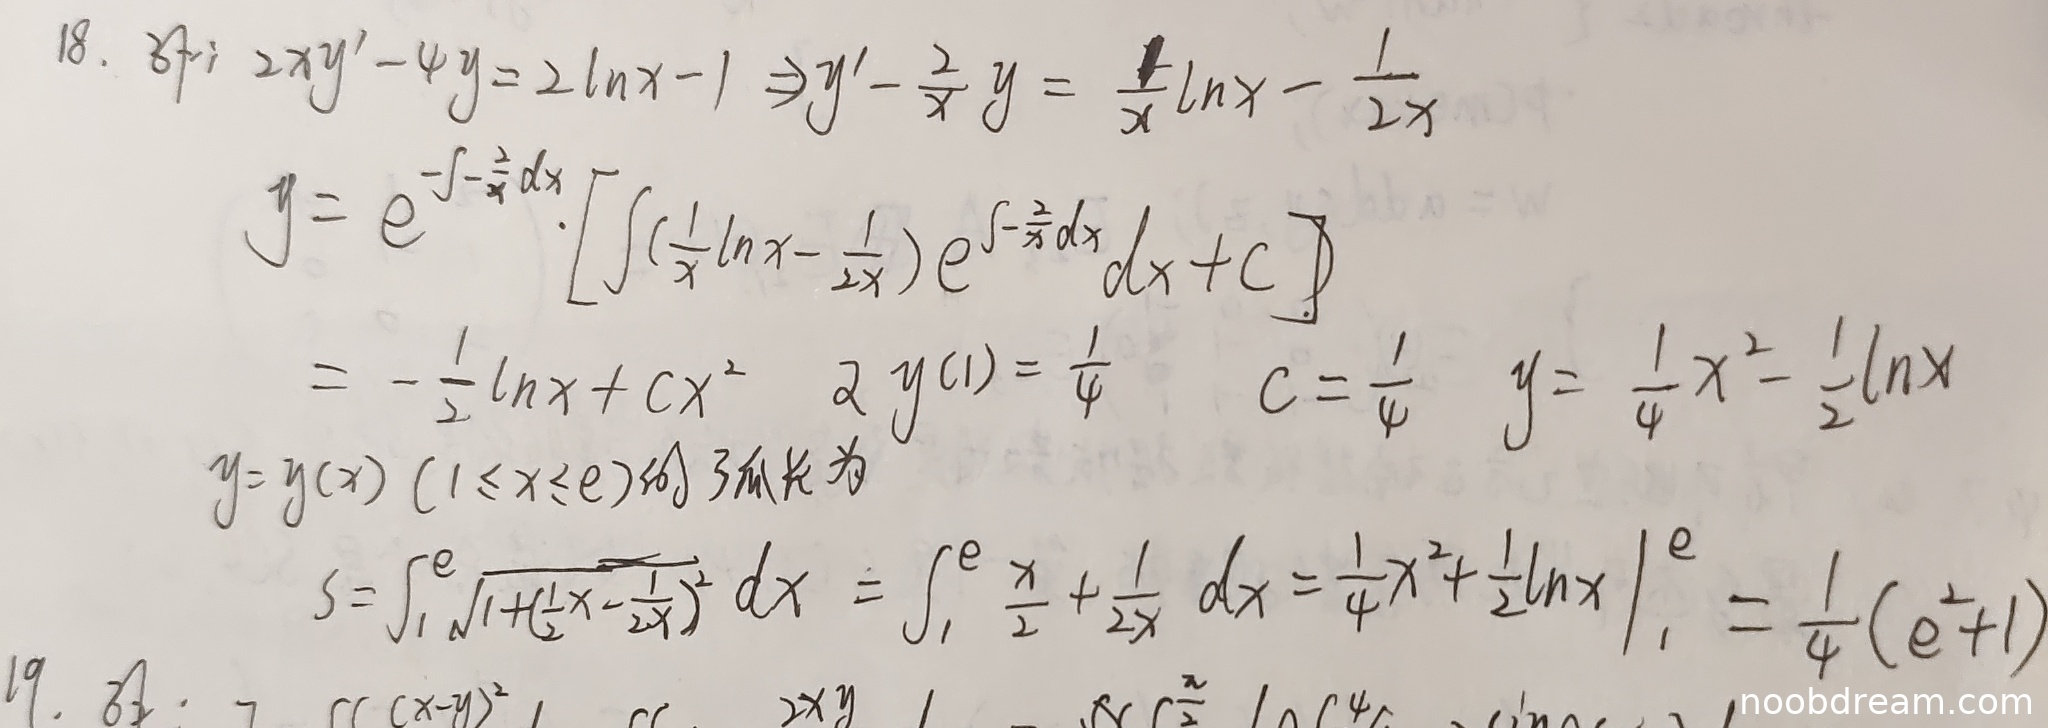 18. 解: 2xy' - 4y = 2lnx - 1 ⇒ y' - 2/x y = 1/x lnx - 1/2x
y = e^{-∫-2/x dx} · [∫(1/x lnx - 1/2x) e^{∫-2/x dx} dx + C]
= -1/2 lnx + Cx² 又 y(1) = 1/4 C = 1/4 y = 1/4 x² - 1/2 lnx
y = y(x) (1 ≤ x ≤ e) 的弧长为
S = ∫₁^e √(1+(1/2 x - 1/2x)²) dx = ∫₁^e x/2 + 1/2x dx = 1/4 x² + 1/2 lnx |₁^e = 1/4 (e²+1)
19. 解:
noobdream.com